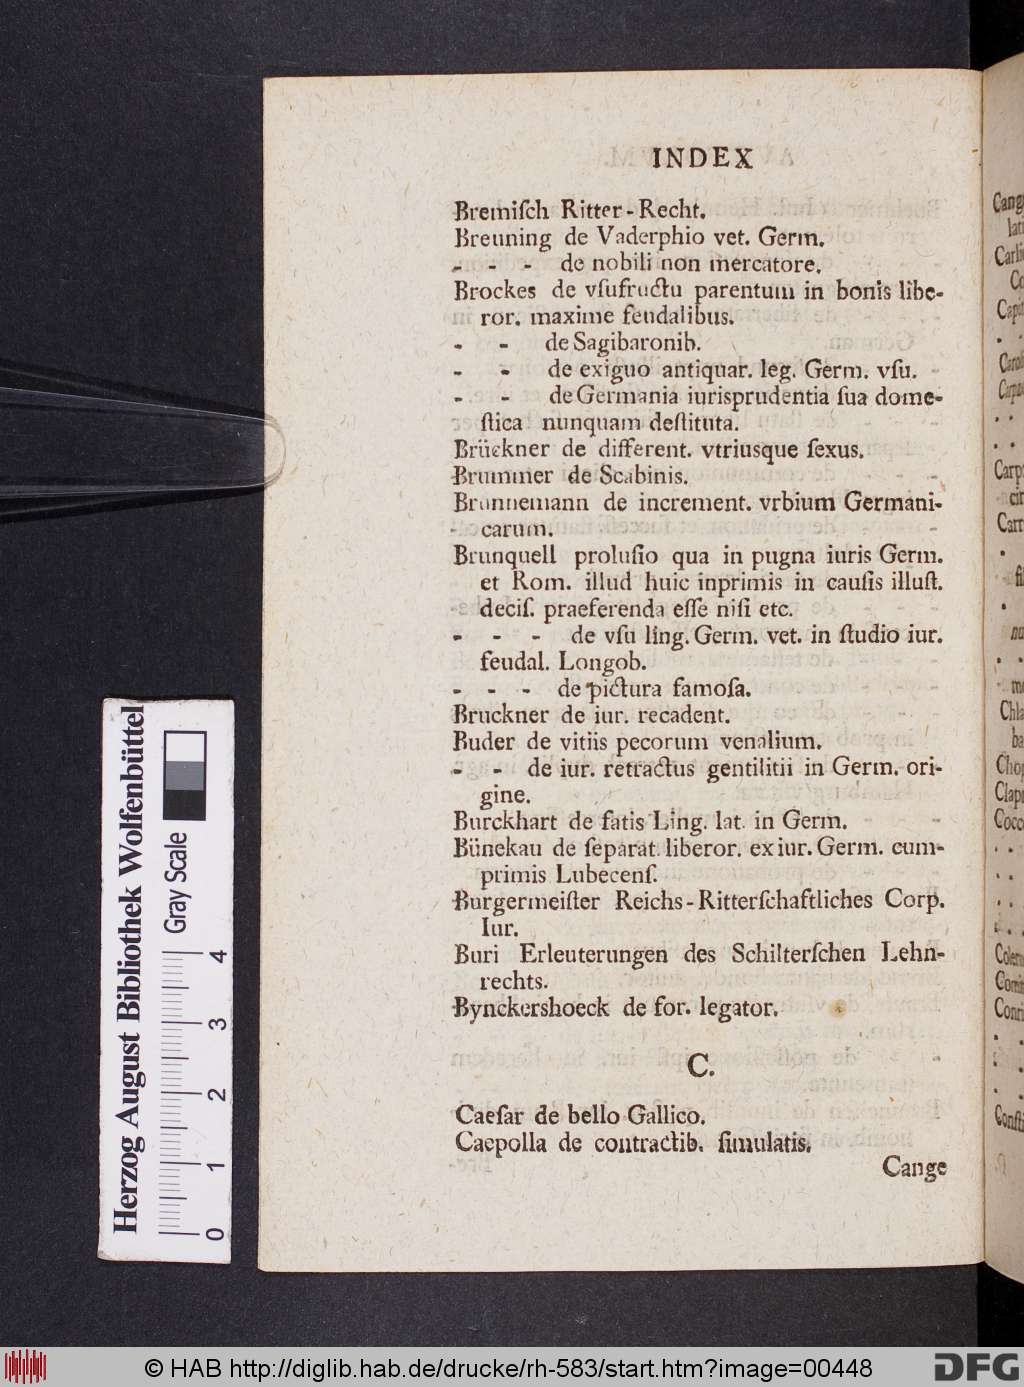 INDEX
Bremiſch Ritter-Recht.
Breuning de Vaderphio vet. Germ.
- - - de nobili non mercatore.
Brockes de vſufructu parentum in bonis libe-
ror. maxime feudalibus.
- - de Sagibaronib.
- - de exiguo antiquar. leg. Germ. vſu.
- - de Germania iurisprudentia ſua dome-
ſtica nunquam deſtituta.
Brückner de different. vtriusque ſexus.
Brummer de Scabinis.
Brunnemann de increment. vrbium Germani-
carum.
Brunquell proluſio qua in pugna iuris Germ.
et Rom. illud huic inprimis in cauſis illuſt.
deciſ. praeferenda eſſe niſi etc.
- - - de vſu ling. Germ. vet. in ſtudio iur.
feudal. Longob.
- - - de pictura famoſa.
Bruckner de iur. recadent.
Buder de vitiis pecorum venalium.
- - de iur. retractus gentilitii in Germ. ori-
gine.
Burckhart de fatis Ling. lat. in Germ.
Bünekau de ſeparat. liberor. ex iur. Germ. cum-
primis Lubecenſ.
Burgermeiſter Reichs-Ritterſchaftliches Corp.
Iur.
Buri Erleuterungen des Schilterſchen Lehn-
rechts.
Bynckershoeck de for. legator.
C.
Caeſar de bello Gallico.
Caepolla de contractib. ſimulatis.
Cange
Herzog August Bibliothek Wolfenbüttel
Gray Scale
0 1 2 3 4
© HAB http://diglib.hab.de/drucke/rh-583/start.htm?image=00448
DFG